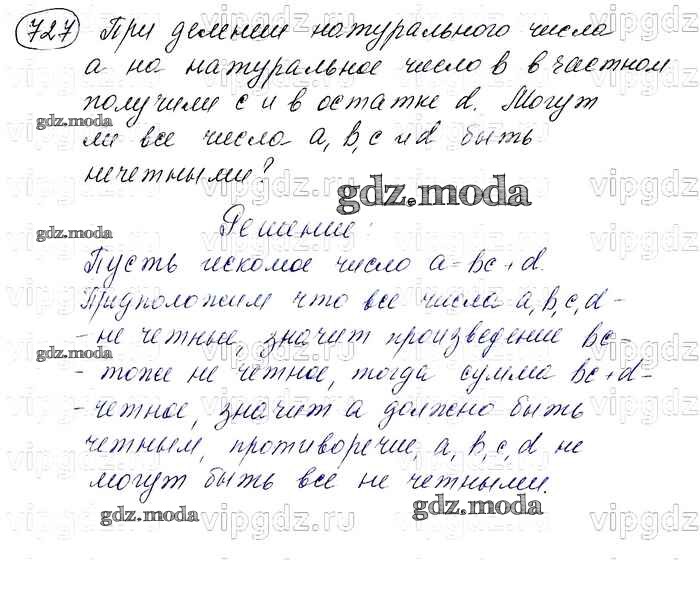 727 При делении натурального числа
а на натуральное число в в частном
получили с и в остатке d. Могут
gdz.moda
ли все числа а, в, с и d быть
нечетными?
gdz.moda
gdz.moda
Решение:
Пусть искомое число а = вс + d.
Придположим что все числа а, в, с, d -
- не четные, значит произведение вс -
gdz.moda
- тоже не четное, тогда сумма вс + d -
- четное, значит а должно быть
четным, противоречие, а, в, с, d не
могут быть все не четными.
gdz.moda
gdz.moda
vipgdz.ru